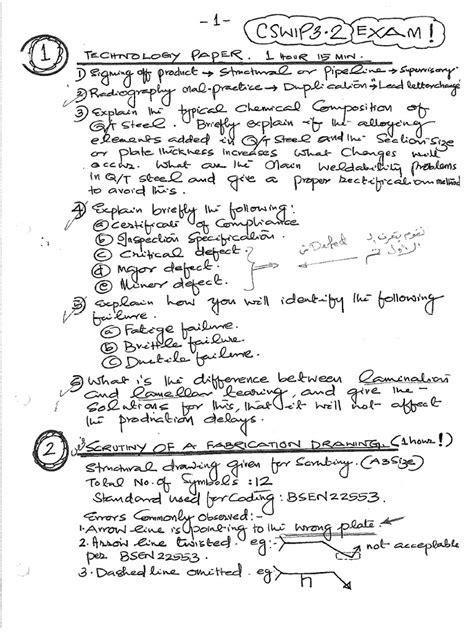 - 1 -
CSWIP3.2 EXAM!
1 TECHNOLOGY PAPER. 1 HOUR 15 MIN.
1) Signing off product → Structural or Pipeline → Supervisory.
2) Radiography mal-practice → Duplication → Lead letter change
3) Explain the typical Chemical Composition of
Q/T Steel. Briefly explain if the alloying
elements added in Q/T Steel and the Section Size
or plate thickness increases what Changes will
occur. What are the Main weldability problems
in Q/T Steel and give a proper rectification method
to avoid this.
4) Explain briefly the following:
a) Certificate of Compliance
b) Inspection Specification.
c) Critical defect.
d) Major defect.
e) Minor defect.
Defect
5) Explain how you will identify the following
failure.
a) Fatige failure.
b) Brittle failure.
c) Ductile failure.
6) What is the difference between lamination
and lamellar tearing, and give the
Solutions for this, that it will not affect
the production delays.
2 SCRUTINY OF A FABRICATION DRAWING. (1 hour!)
Structural drawing given for Scrutiny. (A3 Size)
Total No. of Symbols : 12
Standard used for Coding : BSEN22553.
Errors Commonly Observed:-
1. Arrow line is pointing to the wrong plate
2. Arrow line twisted. eg:- not acceptable
per BSEN 22553.
3. Dashed line omitted. eg